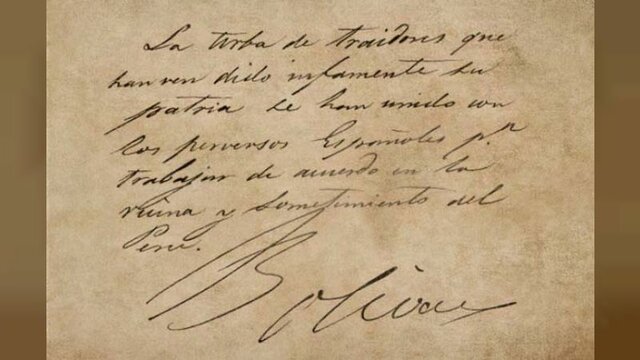 La turba de traidores que
han ven dido infamente su
patria se han unido con
los perversos Españoles p.ʳ
trabajar de acuerdo en la
ruina y sometimiento del
Perú.
Bolívar